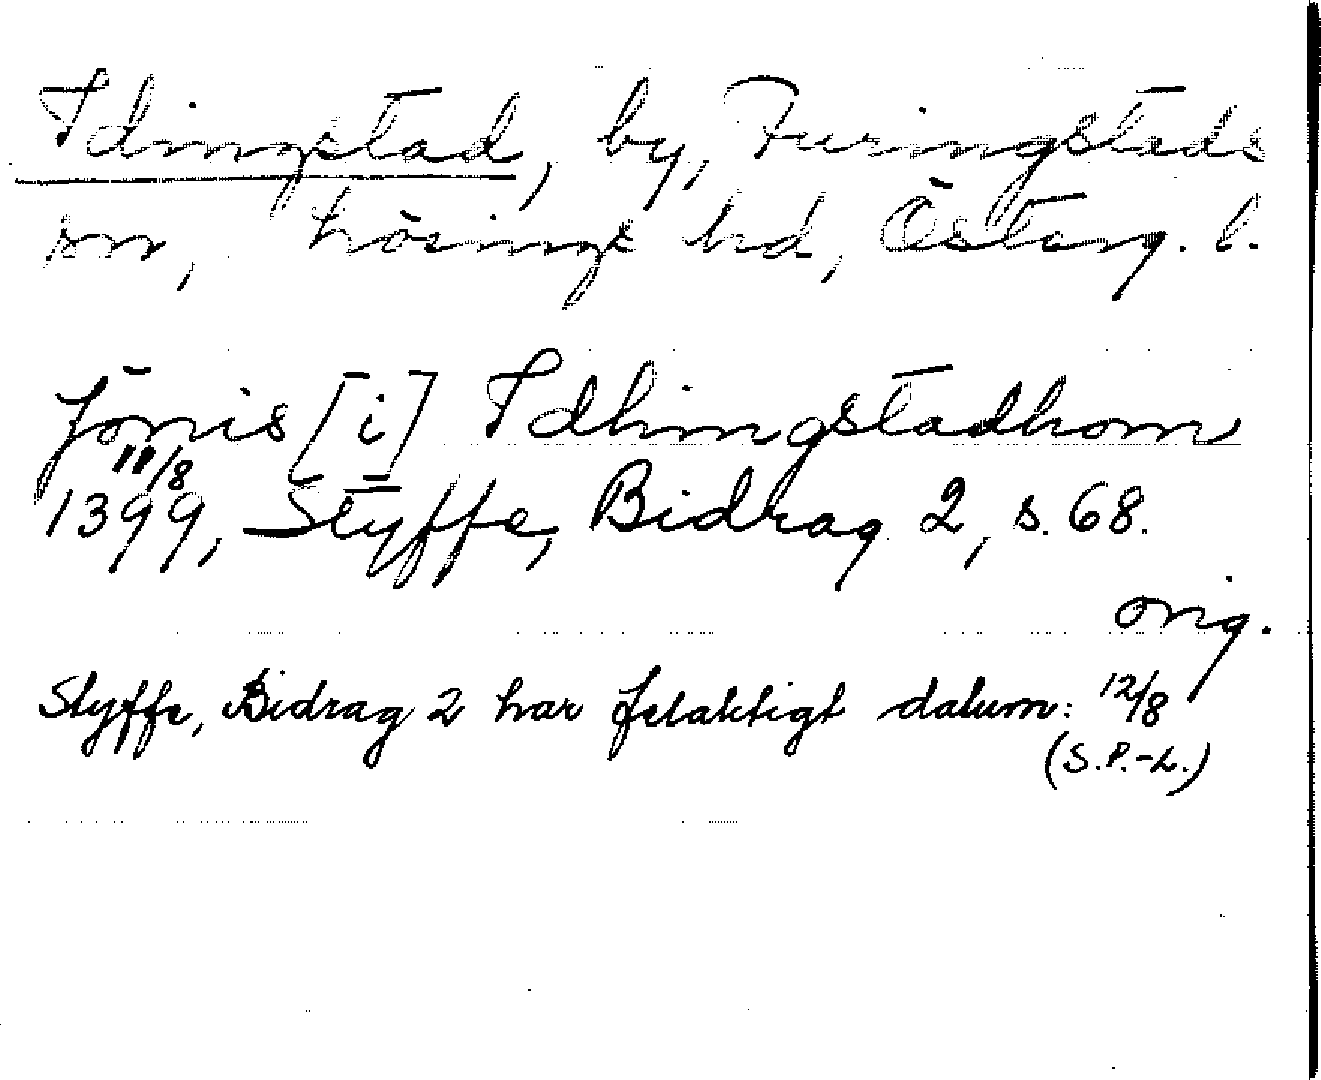 Idingstad, by, Furingstads
sn, Lösings hd, Österg. l.
Jönis [i] Idhingstadhom
11/8
1399, Styffe, Bidrag 2, s. 68.
orig.
Styffe, Bidrag 2 har felaktigt datum: 12/8
(S.P.-L.)